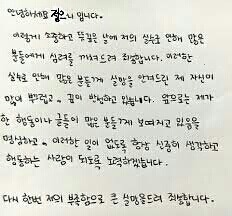 안녕하세요 정으니 입니다.
이렇게 소중하고 뜻깊은 날에 저의 실수로 인해 많은
분들에게 심려를 끼쳐드려 죄송합니다. 이러한
실수로 인해 많은 분들께 실망을 안겨드린 제 자신이
많이 부끄럽고 깊이 반성하고 있습니다. 앞으로는 제가
한 행동이나 글들이 많은 분들께 보여지고 있음을
명심하고 이러한 일이 없도록 항상 신중히 생각하고
행동하는 사람이 되도록 노력하겠습니다.
다시 한번 저의 부족함으로 큰 실망을드려 죄송합니다.